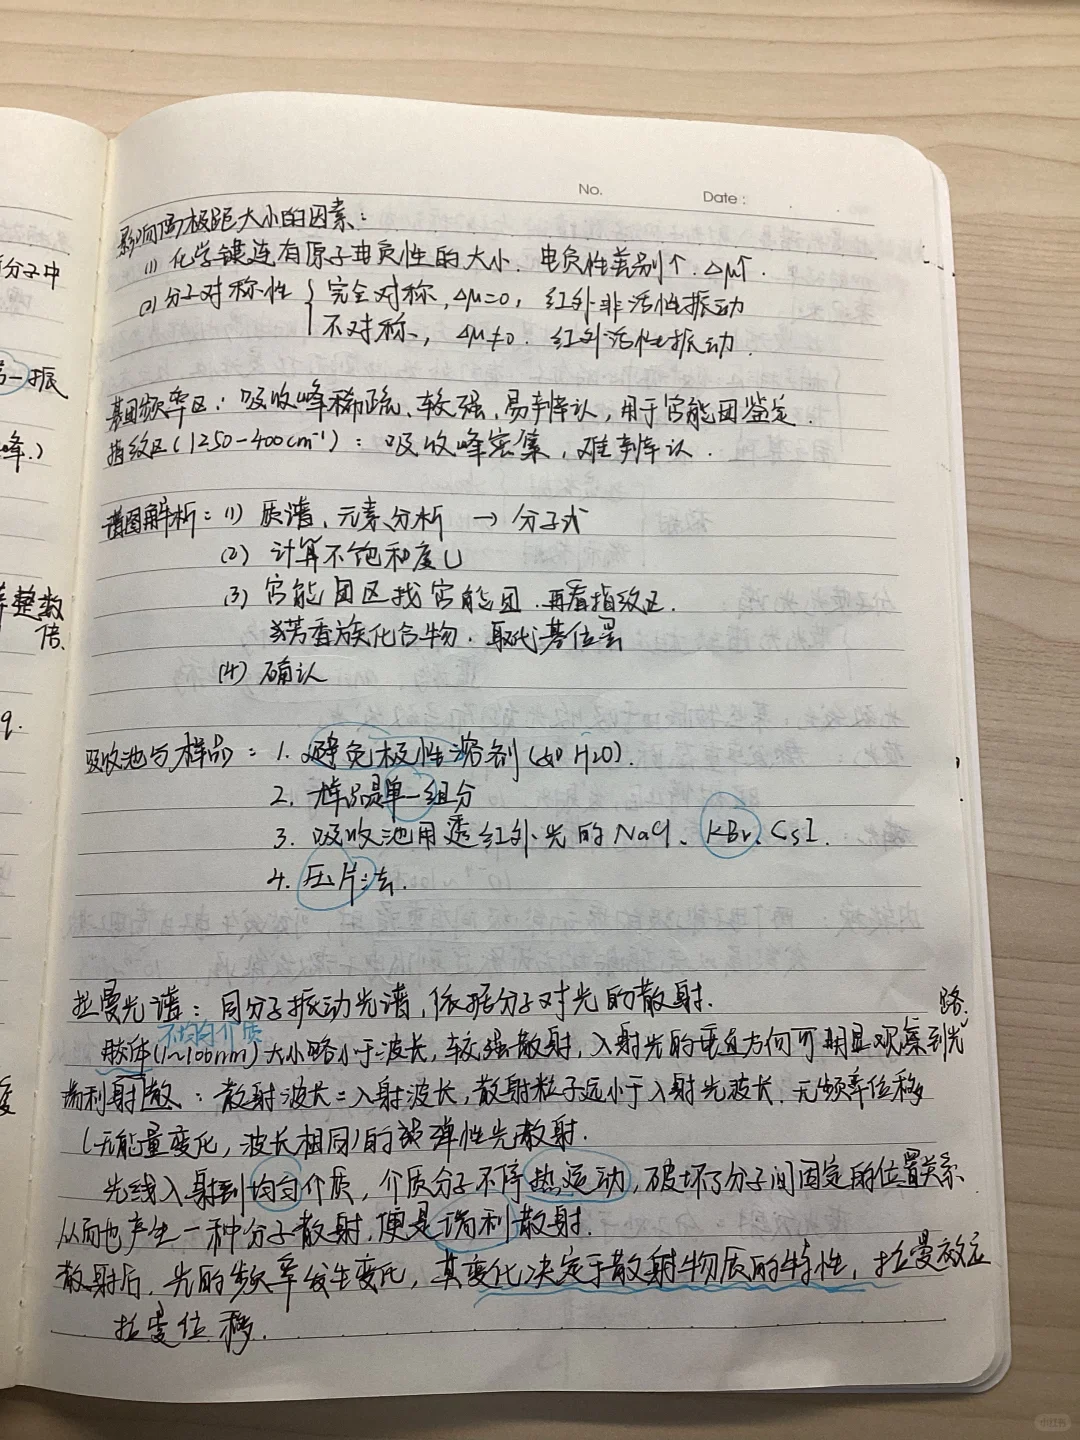 No. Date:
影响偶极距大小的因素:
(1) 化学键连有原子电负性的大小. 电负性差别↑. Δμ↑.
(2) 分子对称性 { 完全对称, Δμ=0, 红外非活性振动
不对称, Δμ≠0. 红外活性振动.
基团频率区: 吸收峰稀疏、较强、易辨认, 用于官能团鉴定.
指纹区(1250-400cm⁻¹): 吸收峰密集, 难辨认.
谱图解析: (1) 质谱、元素分析 → 分子式
(2) 计算不饱和度U
(3) 官能团区找官能团. 再看指纹区.
芳香族化合物. 取代基位置
(4) 确认
吸收池与样品: 1. 避免极性溶剂(如H2O).
2. 样品是单一组分
3. 吸收池用透红外光的NaCl、KBr、CsI.
4. 压片法.
拉曼光谱: 同分子振动光谱, 依据分子对光的散射.
不均匀介质
路.
胶体(1~100nm)大小略小于波长, 较强散射, 入射光的垂直方向可明显观察到光
瑞利射散: 散射波长=入射波长, 散射粒子远小于入射光波长. 无频率位移
(无能量变化, 波长相同)的弹性光散射.
光线入射到均匀介质, 介质分子不停热运动, 破坏了分子间固定的位置关系
从而也产生一种分子散射, 便是瑞利散射.
散射后, 光的频率发生变化, 其变化决定于散射物质的特性, 拉曼效应
拉曼位移.
分子中
一振
峰.)
整数
倍.
q.